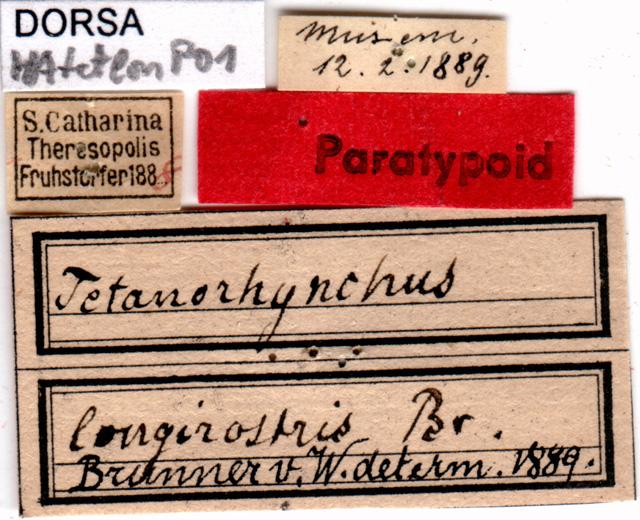 DORSA
HAtetlonP01
Mus. em.
12. 2. 1889.
S. Catharina
Theresopolis
Fruhstorfer 1888
Paratypoid
Tetanorhynchus
longirostris Br.
Brunner v. W. determ. 1889.